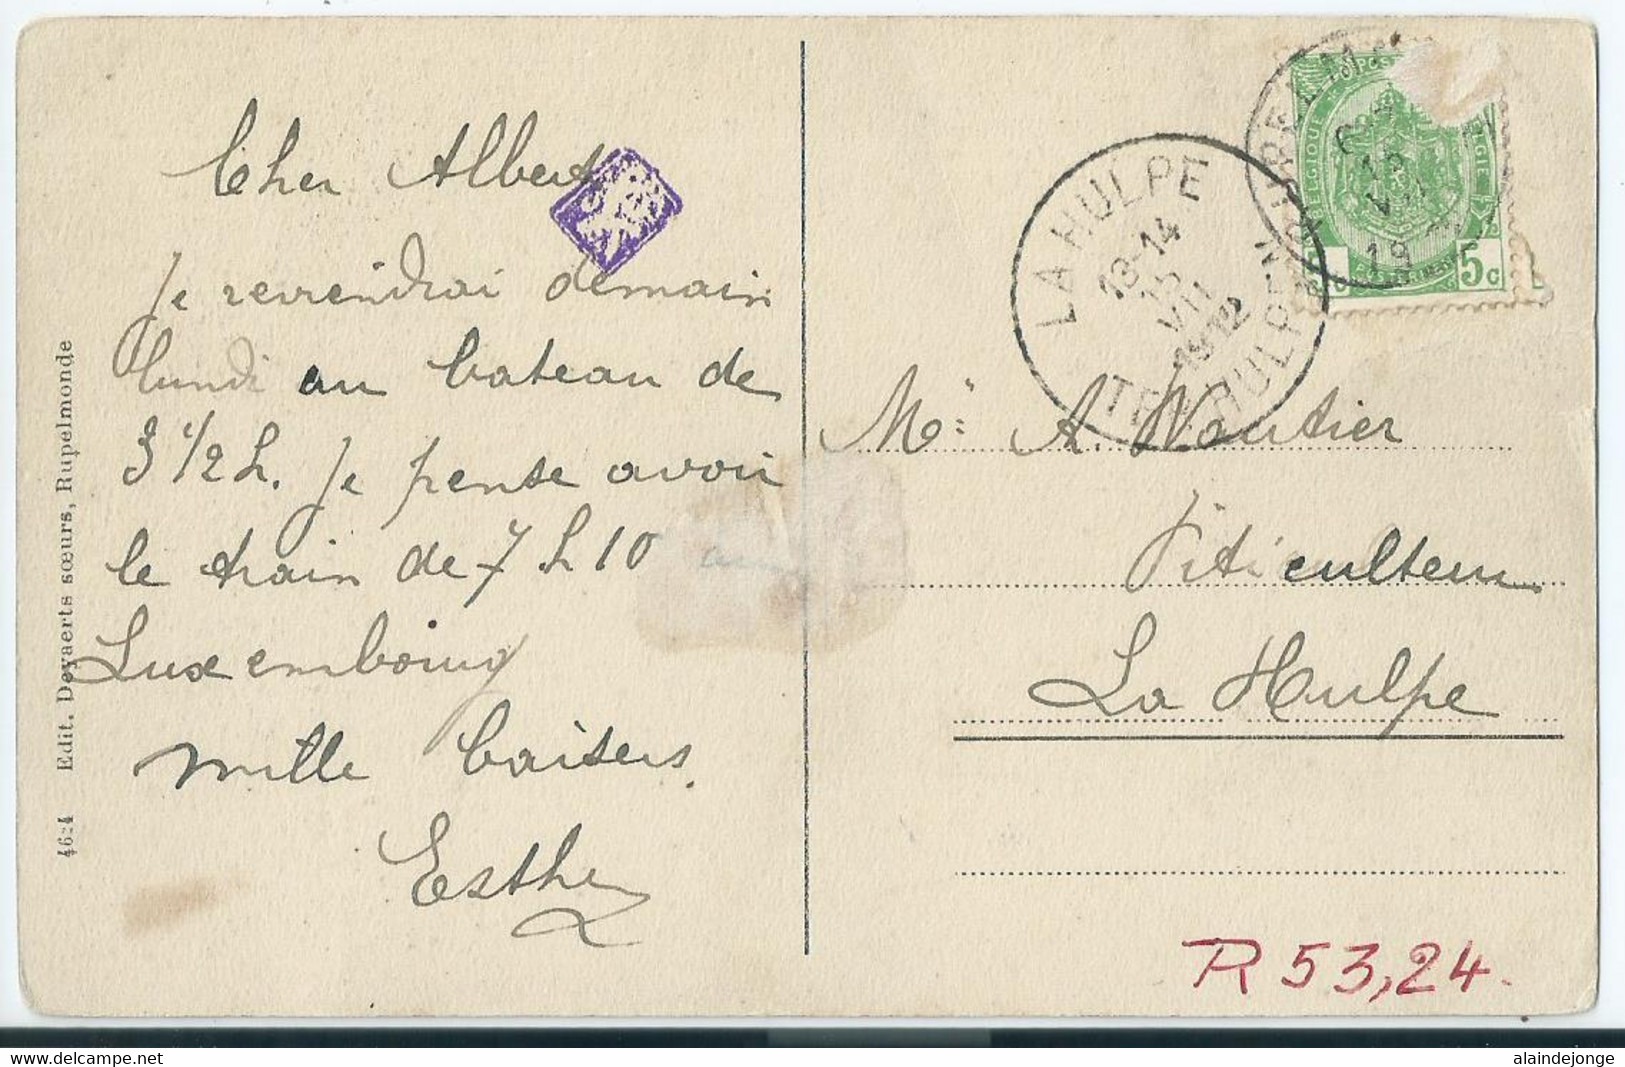 Cher Albert
Je reviendrai demain
lundi au bateau de
3 1/2 h. Je pense avoir
le train de 7 h 10 au
Luxembourg
mille baisers.
Esther
46:4 Edit. Deyaerts sœurs, Rupelmonde
LA HULPE
13-14
15
VII
1912
TER HULPEN
5c
Mr A. Wautier
Viticulteur
La Hulpe
R 53,24.
alaindejonge